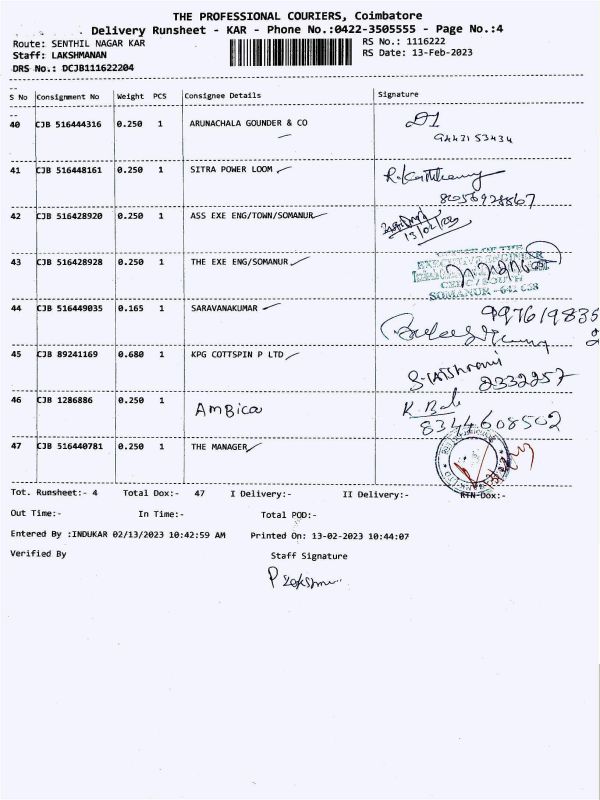 THE PROFESSIONAL COURIERS, Coimbatore
Delivery Runsheet - KAR - Phone No.:0422-3505555 - Page No.:4
Route: SENTHIL NAGAR KAR RS No.: 1116222
Staff: LAKSHMANAN RS Date: 13-Feb-2023
DRS No.: DCJB111622204
S No Consignment No Weight PCS Consignee Details Signature
40 CJB 516444316 0.250 1 ARUNACHALA GOUNDER & CO
9442153434
41 CJB 516448161 0.250 1 SITRA POWER LOOM
8056928867
42 CJB 516428920 0.250 1 ASS EXE ENG/TOWN/SOMANUR
13/02/23
43 CJB 516428928 0.250 1 THE EXE ENG/SOMANUR
OFFICE OF THE
EXECUTIVE ENGINEER
SOMANUR - 641 668
44 CJB 516449035 0.165 1 SARAVANAKUMAR
997619835
45 CJB 89241169 0.680 1 KPG COTTSPIN P LTD
2332257
46 CJB 1286886 0.250 1 AMBICA
K. Bal
8344608502
47 CJB 516440781 0.250 1 THE MANAGER
Tot. Runsheet:- 4 Total Dox:- 47 I Delivery:- II Delivery:- RTN Dox:-
Out Time:- In Time:- Total POD:-
Entered By :INDUKAR 02/13/2023 10:42:59 AM Printed On: 13-02-2023 10:44:07
Verified By Staff Signature